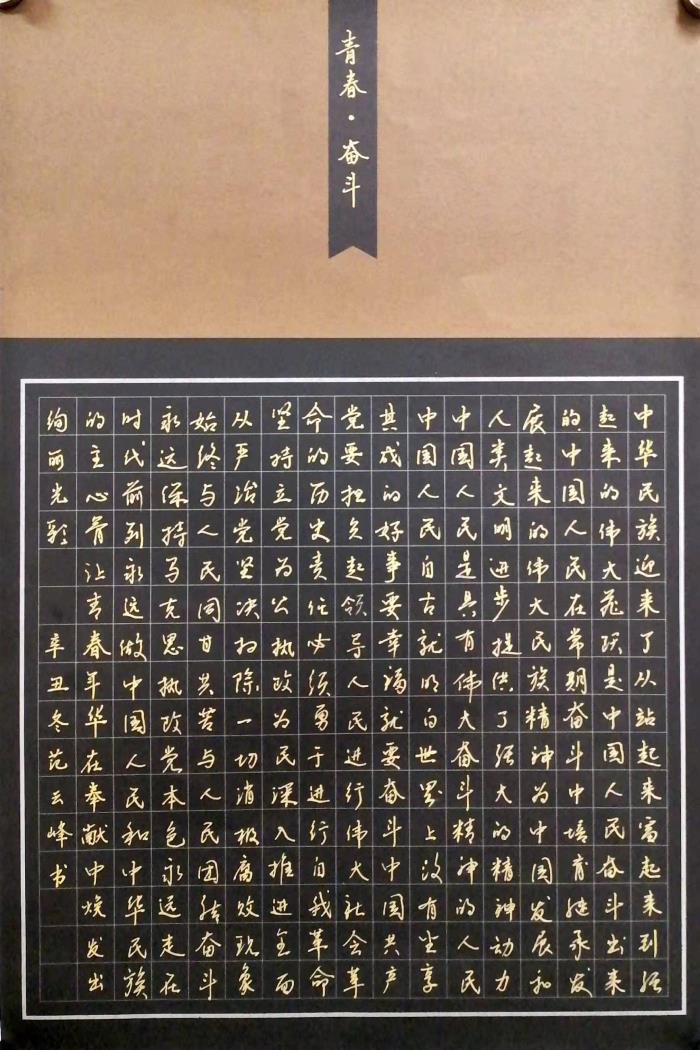 青春·奋斗
中华民族迎来了从站起来富起来到强
起来的伟大飞跃是中国人民奋斗出来
的中国人民在常期奋斗中培育继承发
展起来的伟大民族精神为中国发展和
人类文明进步提供了强大的精神动力
中国人民是具有伟大奋斗精神的人民
中国人民自古就明白世界上没有坐享
其成的好事要幸福就要奋斗中国共产
党要担负起领导人民进行伟大社会革
命的历史责任必须勇于进行自我革命
坚持立党为公执政为民深入推进全面
从严治党坚决扫除一切消极腐败现象
始终与人民同甘共苦与人民团结奋斗
永远保持马克思执政党本色永远走在
时代前列永远做中国人民和中华民族
的主心骨让青春年华在奉献中焕发出
绚丽光彩 辛丑冬范云峰书